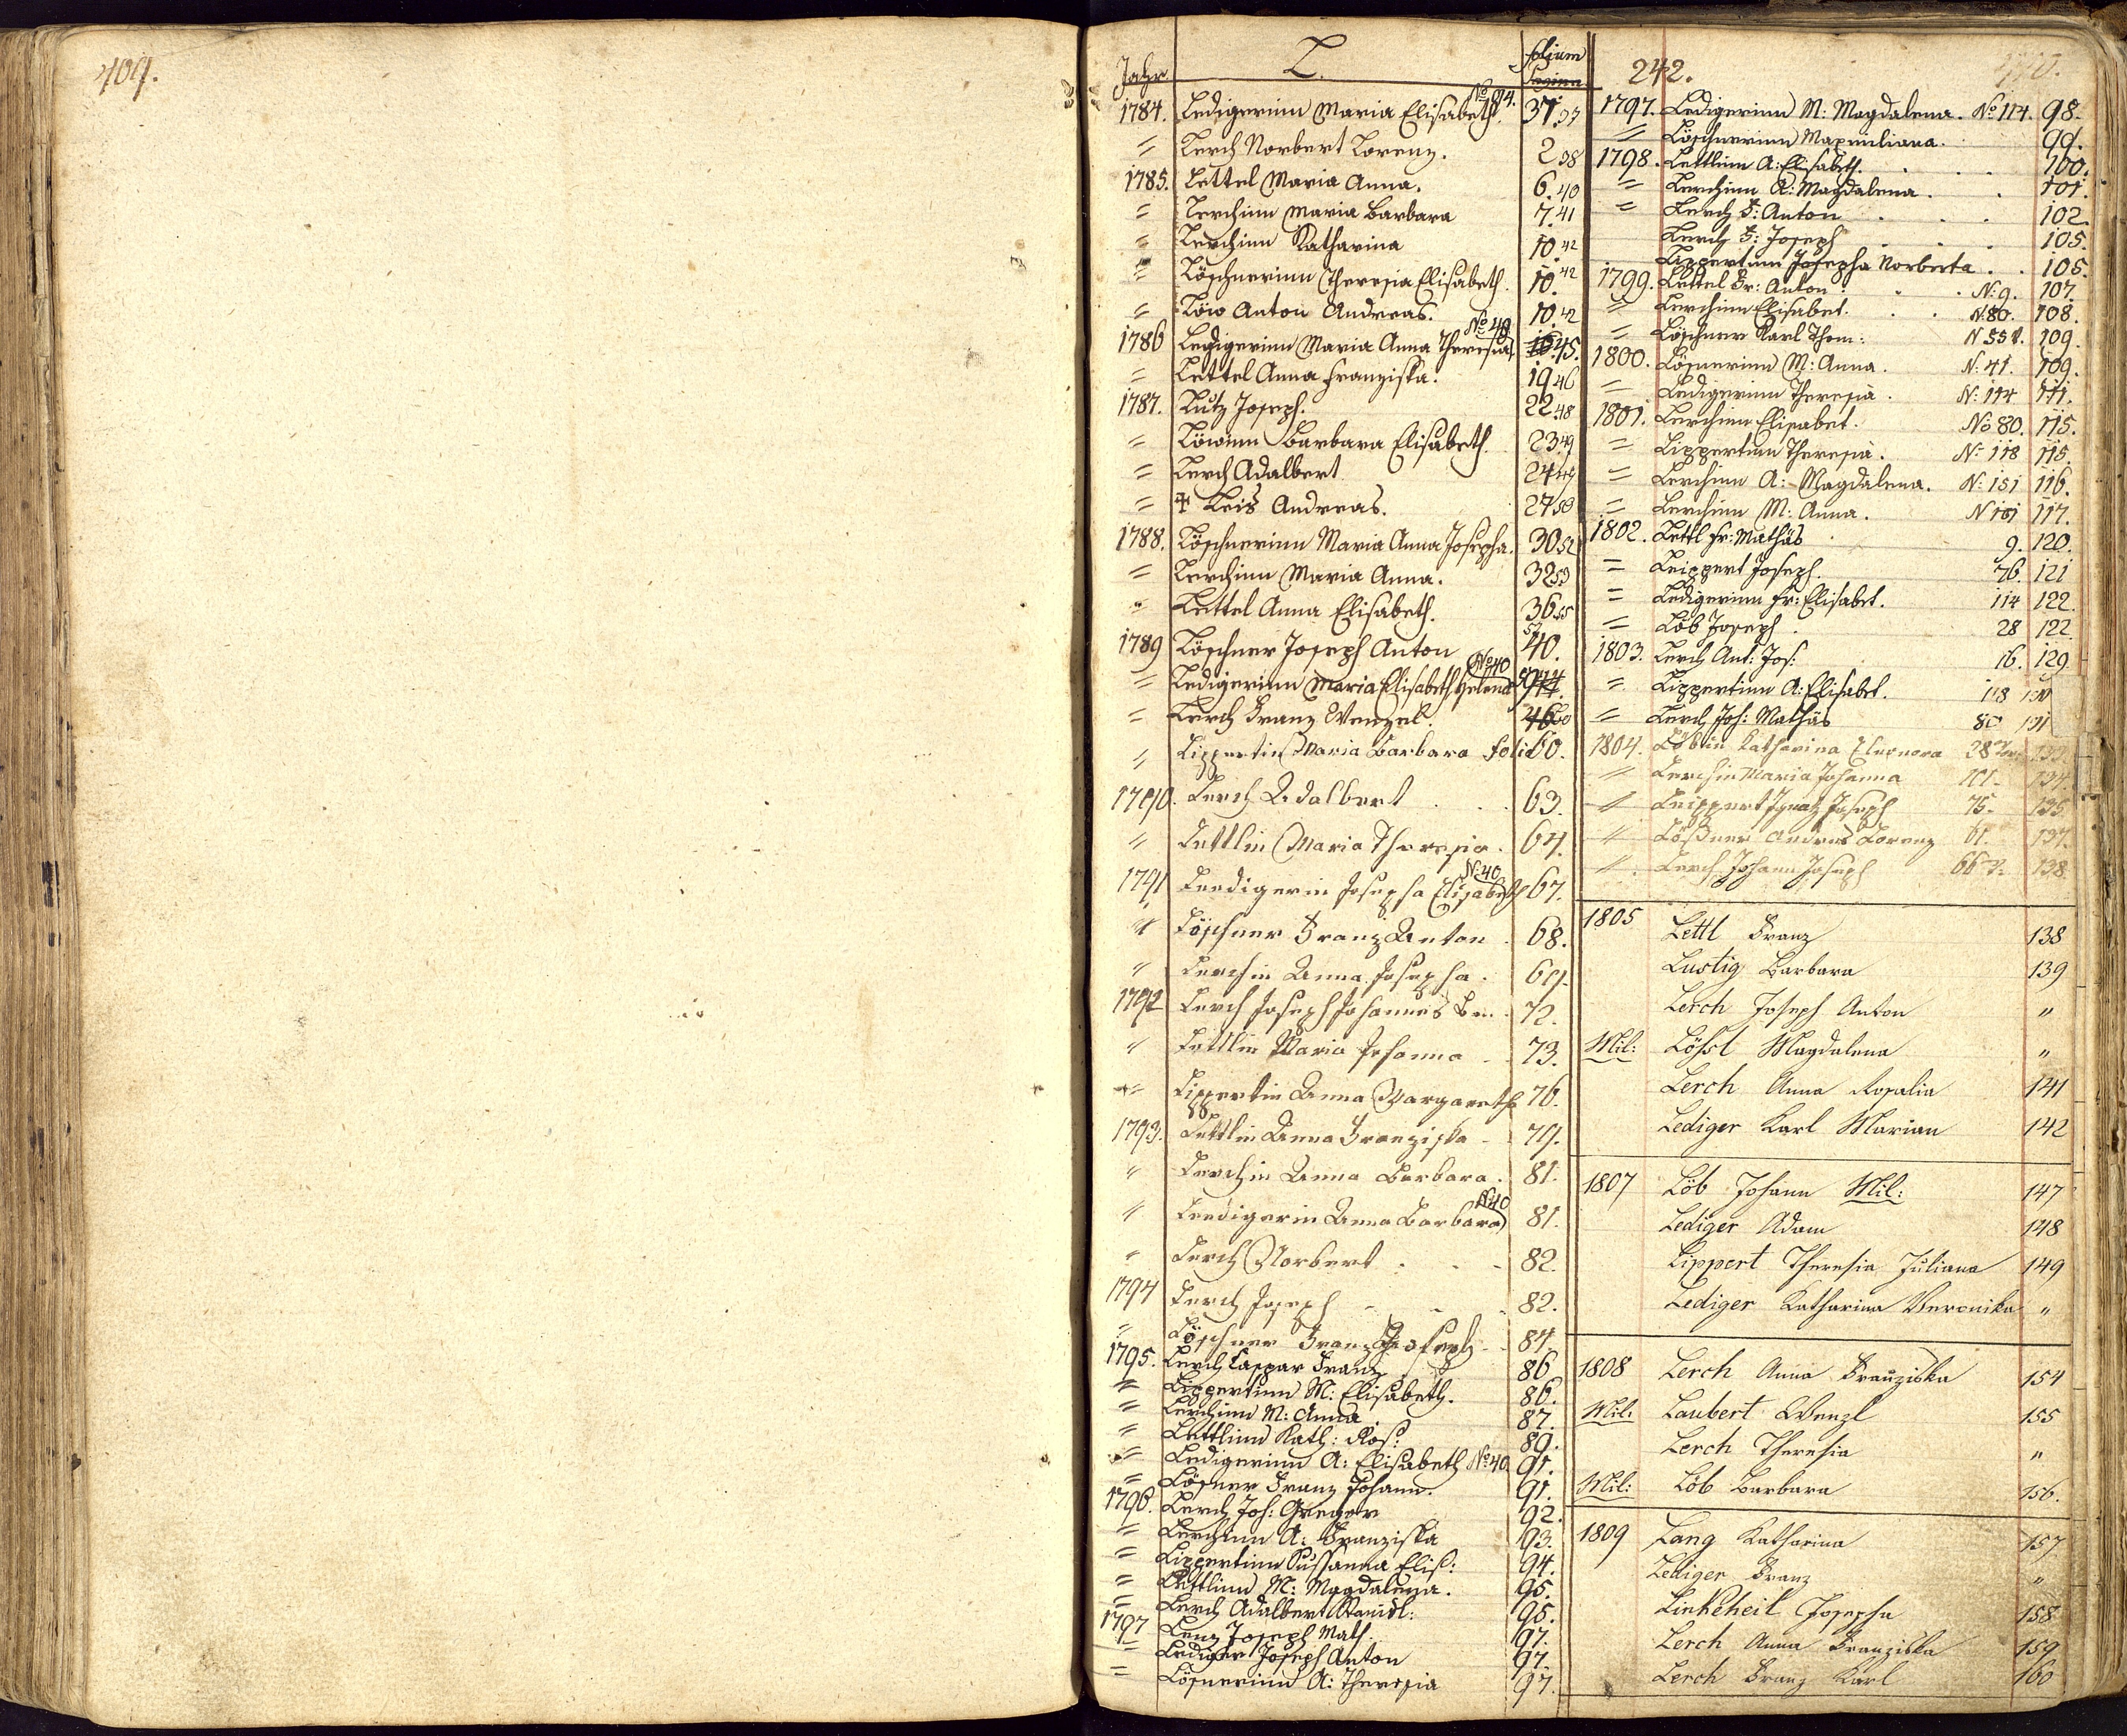 409.
Jahr. L. folium
1784. Ledigerinn Maria Elisabeth. No 94. 37. 37
= Lerch Norbert Lorenz. 2 38
1785. Lettel Maria Anna. 6. 40
= Lerchinn Maria Barbara 7. 41
= Lerchinn Katharina 10. 42
= Löschnerinn Theresia Elisabeth. 10. 42
= Löw Anton Andreas. 10. 42
1786 Ledigerinn Maria Anna Theresia No 48. 45.
= Lettel Anna Franziska. 19 46
1787. Lutz Joseph. 22. 48
= Löwinn Barbara Elisabeth. 23. 49
= Lerch Adalbert 24 49
= ‡ Leis Andreas. 27 50
1788. Löschnerinn Maria Anna Josepha. 30 52
= Lerchinn Maria Anna. 32 53
= Lettel Anna Elisabeth. 36 55
1789 Löschner Joseph Anton 40.
= Ledigerinn Maria Elisabeth Helena No 40
= Lerch Franz Wenzel. 46 60
" Lippertin Maria Barbara foli 60.
1790. Lerch Adalbert . . . 63.
" Lettlin Maria Theresia. 64.
1791 Leedigerin Josepha Elisabeth N: 40 67.
" Löschner Franz Anton . 68.
" Lerchin Anna Josepha . 69.
1792 Lerch Joseph Johannes 72.
" Lettlin Maria Johanna . . 73.
" Lippertin Anna Margareth 76.
1793. Lettlin Anna Franziska - 79.
" Lerchin Anna Barbara . 81.
" Leedigerin Anna Barbara N: 40 81.
" Lerch Norbert . - - 82.
1794 Lerch Joseph - - - 82.
" Löschner Franz Joseph - 84.
1795. Lerch Caspar Franz 86
= Lippertinn M: Elisabeth. 86.
= Lerchinn M: Anna . 87.
= Lettlinn Kath: Ros: 89.
= Ledigerinn A: Elisabeth No 40. 91.
= Lösner Franz Johann. 91.
1796. Lerch Joh: Gregor 92.
= Lerchinn A: Franziska 93.
= Lippertinn Sußanna Elis: 94.
= Lettlinn M: Magdalena. 95.
= Lerch Adalbert Stanisl: 95.
1797 Lenz Joseph Math. 97.
= Lediger Joseph Anton 97.
= Lösnerinn A: Theresia 97.
242.
1797. Ledigerinn M: Magdalena. No 114. 98.
= Löschnerinn Maximiliana. 99.
1798. Lettlinn A: Elisabeth. . . . 100.
= Lerchinn A: Magdalena . . 101.
= Lerch F: Anton . . . 102.
Lerch F: Joseph . . . 105.
Lippertinn Josepha Norberta . . 105.
1799. Lettel Fr: Anton . . N: 9. 107.
= Lerchinn Elisabet. . . N. 80. 108.
= Löschner Karl Thom: N 55 109.
1800. Lösnerinn M: Anna. N: 41. 109.
= Ledigerinn Theresia . N: 114 111.
1801. Lerchinn Elisabet. No 80. 115.
= Lippertinn Theresia. N: 118 115.
= Lerchinn A: Magdalena. N: 151 116.
= Lerchinn M: Anna. N 101 117.
1802. Lettl Fr: Mathäs 9. 120.
= Leippert Joseph. 76. 121
= Ledigerinn Fr: Elisabet. 114 122.
= Löb Joseph . 28 122.
1803. Lerch Ant: Jos: 16. 129.
= Lippertinn A: Elisabet. 118
= Lerch Joh: Mathäs 80 131
1804. Löbin Katharina Eleonora 28 133.
" Lerchin Maria Johanna 101. 134.
" Leippert Ignatz Joseph 75. 135.
" Lößner Andres Lorenz 61. 137.
" Lerch Johann Joseph 66 138.
1805 Lettl Franz 138
Lustig Barbara 139
Lerch Joseph Anton "
Mil: Lößl Magdalena "
Lerch Anna Rosalia 141
Lediger Karl Marian 142
1807 Löb Johann Mil: 147
Lediger Adam 148
Lippert Theresia Juliana 149
Lediger Katharina Veronika "
1808 Lerch Anna Franziska 154
Mil: Laubert Wenzl 155
Lerch Theresia "
Mil: Löb Barbara 156.
1809 Lang Katharina 157
Lediger Franz "
Linkeheil Josepha 158
Lerch Anna Franziska 159
Lerch Franz Karl 160